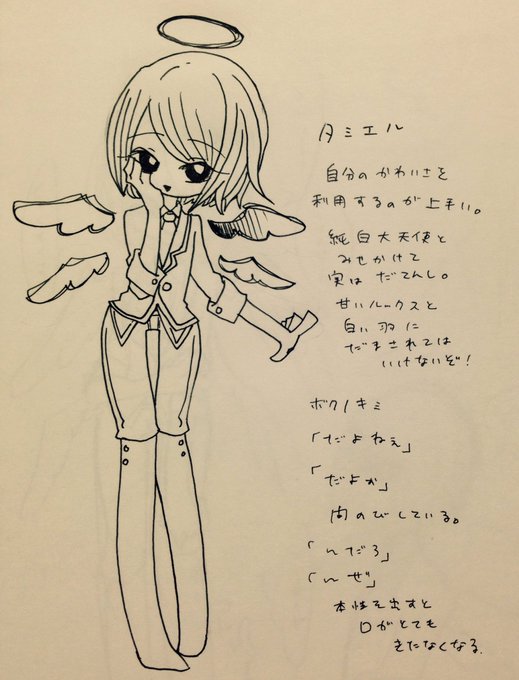 タミエル
自分のかわいさを
利用するのが上手い。
純白大天使と
みせかけて
実はだてんし。
甘いルックスと
白い羽に
だまされては
いけないぞ！
ボク／キミ
「だよねぇ」
「だよぉ」
間のびしている。
「〜だろ」
「〜ぜ」
本性を出すと
口がとても
きたなくなる.